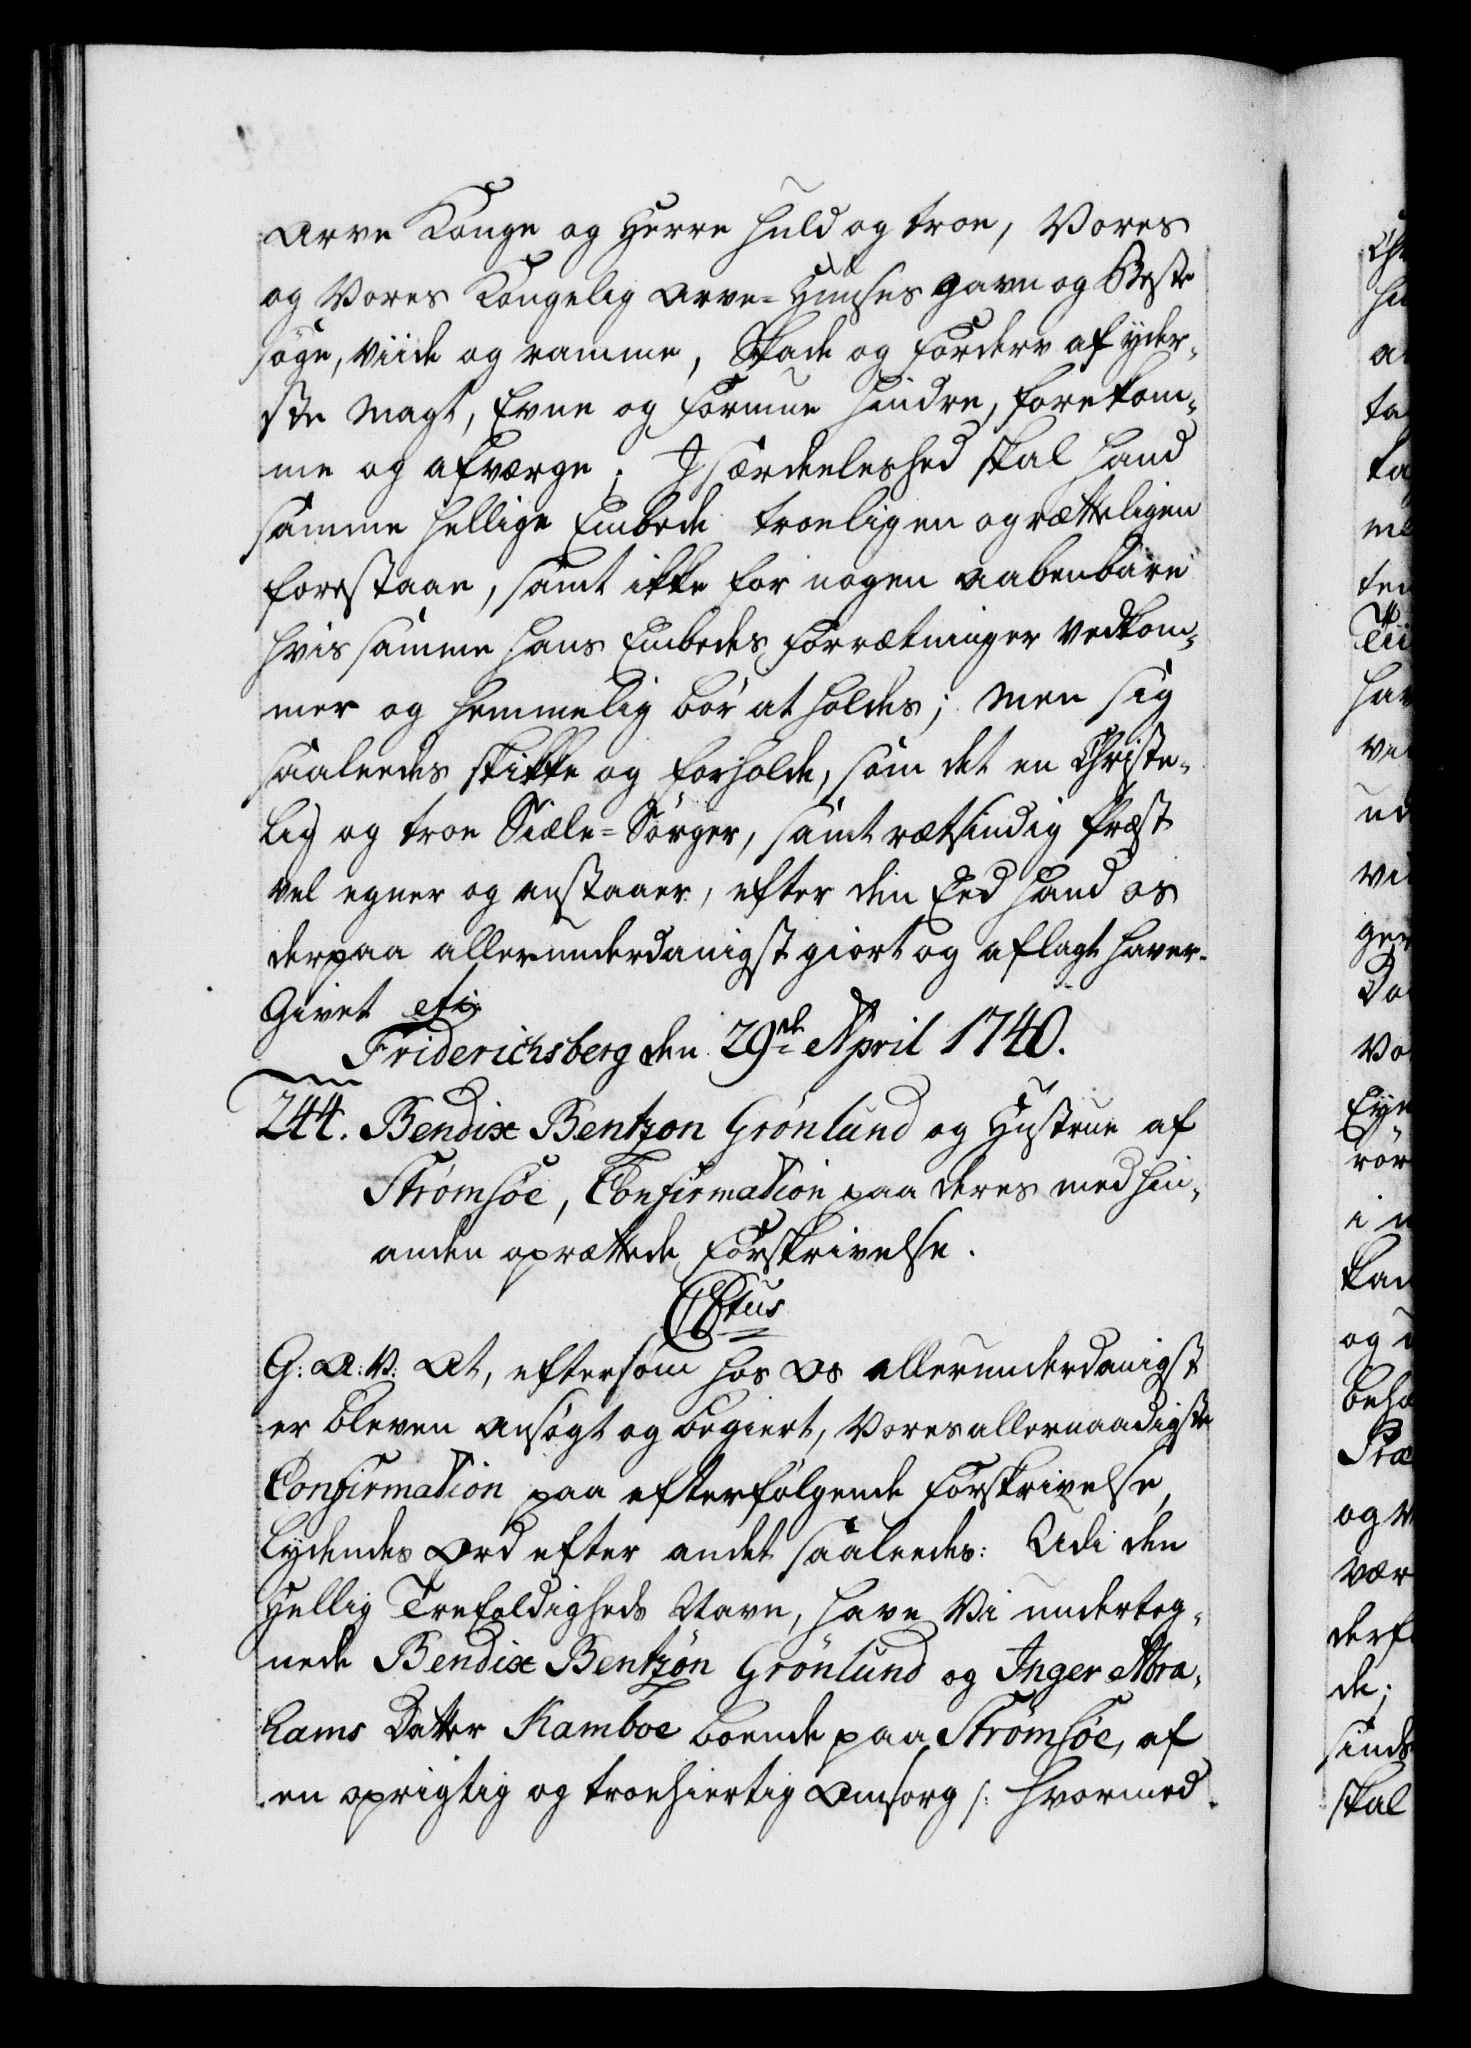 Arve Konge og Herre huld og troe, Vores
og Vores Kongelig Arve-Huuses gavn og Beste
søge, viide og ramme, Skade og Forderv af yder,,
ste Magt, Evne og Formue hindre, forekom,,
me og afværge; J særdeeleshed skal hand
samme hellige Embede troeligen og rætteligen
forestaae, samt ikke for nogen aabenbare
hvis samme hans Embedes Forrætninger vedkom,,
mer og hemmelig bør at holdes; Men sig
saaleedes skikke og forholde, som det en Christe,,
lig og troe Siæle-Sørger, samt rætsindig Præst
vel egner og anstaaer, efter din Eed hand os
derpaa allerunderdanigst giort og aflagt haver.
Givet etc:
Friderichsberg den 29de April 1740.
244. Bendix Bentzon Grönlund og Hustrue af
Strømsøe, Confirmation paa deres med hin,,
anden oprættede Forskrivelse.
C6tus
G: A: V: At, eftersom hos Os allerunderdanigst
er bleven ansøgt og begiert, Vores allernaadigste
Confirmation paa efterfølgende Forskrivelse,
lydendes Ord efter andet saaleedes: Udi den
Hellig Trefoldigheds Navn, have Vi underteg,,
nede Bendix Bentzøn Grönlund og Inger Abra,,
hams Datter Kamboe boende paa Strømsøe, af
en oprigtig og troehiertig Omsorg /: hvormed